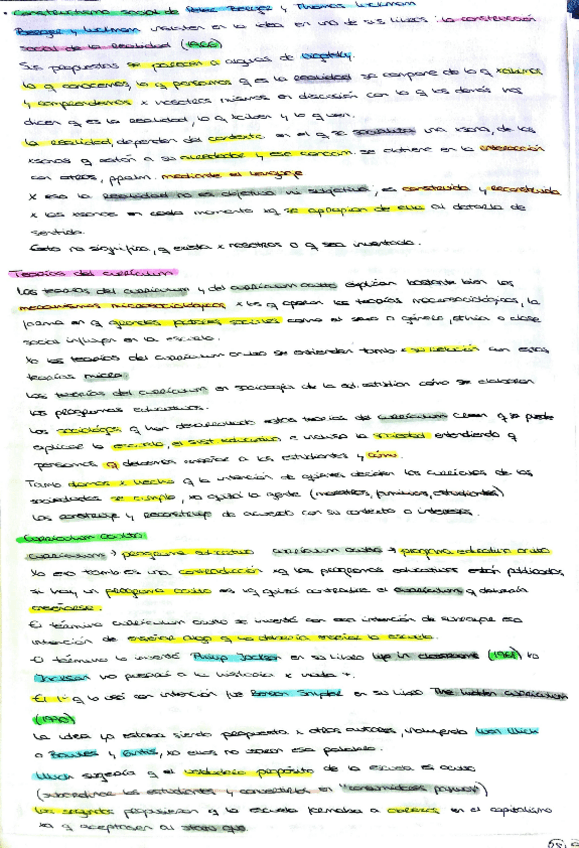 · Constructivismo social de Peter Berger y Thomas Luckman
Berger y Luckman insisten en la idea en uno de sus libros: la construcción
social de la realidad (1966)
Sus propuestas se parecen a algunas de Vigotsky.
lo q conocemos, lo q pensamos q es la realidad se compone de lo q
y comprendemos x nosotros mismos en discusión con lo q los demás nos
dicen q es la realidad, lo q y lo q
la realidad, dependen del contexto en el q se socializa una xsona, de las
xsonas q están a su alrededor y ese se obtiene en la interacción
con otros, ppalm. mediante el lenguaje
x eso la realidad no es objetiva ni subjetiva, es construida y reconstruida
x las xsonas en cada momento xq se apropian de ella al darla de
sentido.
Esto no significa, q exista x nosotros o q sea inventada.
Teorías del currículum
Las teorías del currículum y del currículum oculto explican bastante bien los
mecanismos microsociológicos x los q operan las teorías macrosociológicas, la
forma en q grandes sociales como el sexo o género, etnia o clase
social influyen en la escuela.
Xo las teorías del currículum oculto se entienden tamb x su relación con estas
teorías micro.
Las teorías del currículum en sociología de la ed. estudian cómo se elaboran
los programas educativos.
Los sociólogos q han desarrollado estas teorías del currículum creen q se puede
explicar la escuela, el sist educativo e incluso la sociedad entendiendo q
pensamos q debemos enseñar a los estudiantes y cómo.
Tamb damos x hecho q la intención de quienes deciden los currículos de las
sociedades se cumple, xo quizá la gente (maestros, familias, estudiantes)
los construye y reconstruye de acuerdo con su contexto o intereses.
Currículum oculto
Currículum → programa educativo currículum oculto → programa educativo oculto
Xo eso tamb es una contradicción xq los programas educativos están publicados,
si hay un programa oculto es xq quizá contradice el currículum q debería
enseñarse.
El término currículum oculto se inventó con esa intención de subrayar esa
intención de enseñar algo q no debería enseñar la escuela.
El término lo inventó Philip Jackson en su libro life in classrooms (1968) xo
Jackson no pasará a la historia x nada +.
El 1º q lo usó con intención fue Benson Snyder en su libro The hidden curriculum
(1970)
La idea ya estaba siendo propuesta x otros autores, incluyendo Ivan Illich
o Bowles y Gintis, xo ellos no usaron esa palabra.
Illich sugería q el verdadero propósito de la escuela es oculto
(subordinar los estudiantes y convertirlos en "consumidores pasivos")
Los segundos propusieron q la escuela formaba a obreros en el capitalismo
xa q aceptaran al statu quo.